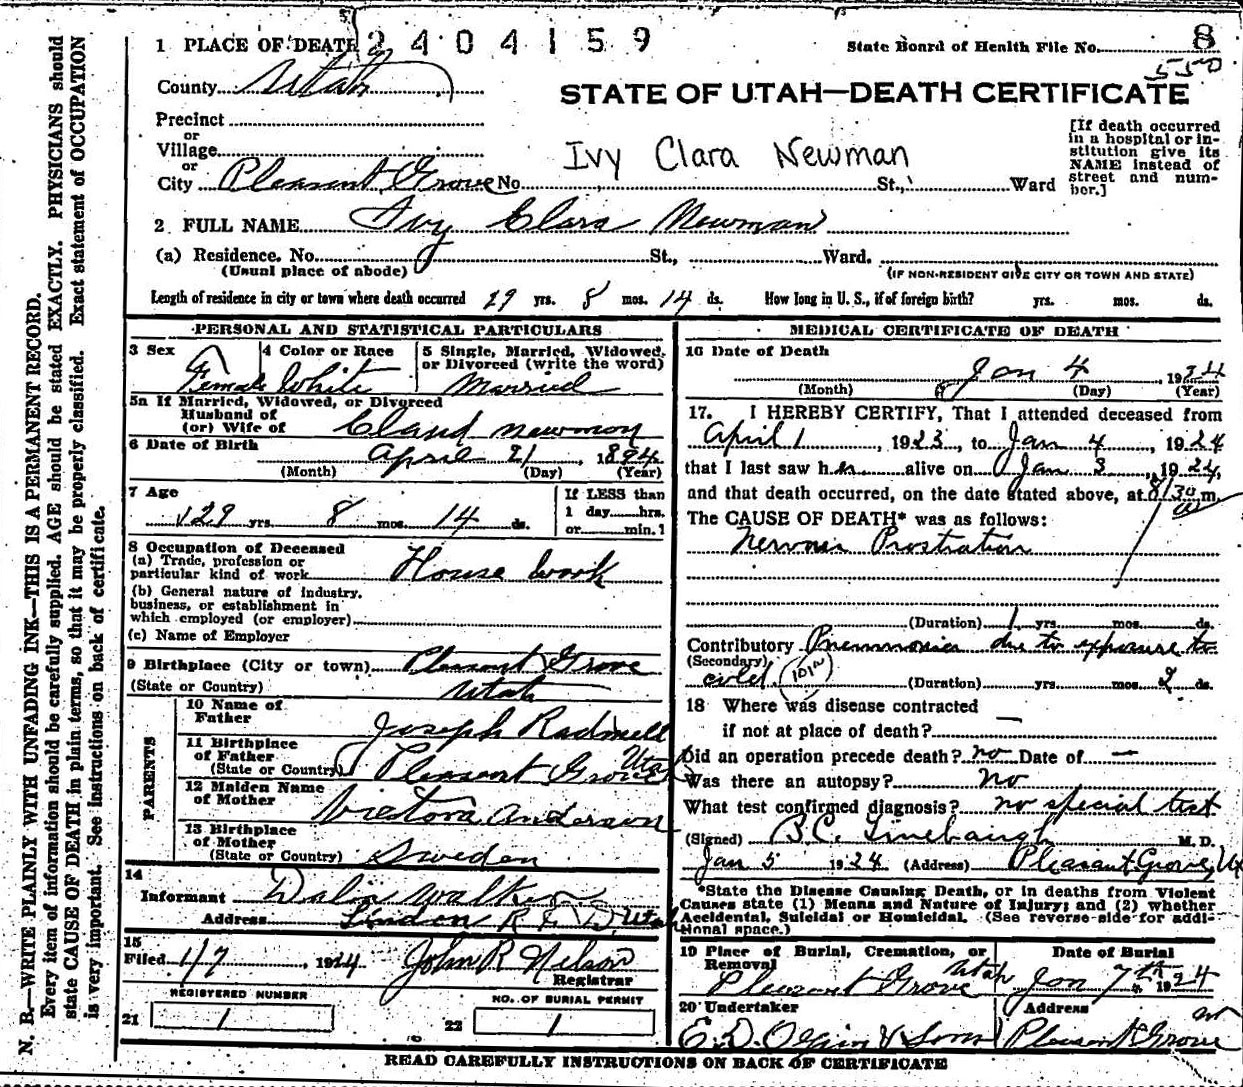 1 PLACE OF DEATH 2404159
State Board of Health File No. 8
550
County Utah
STATE OF UTAH—DEATH CERTIFICATE
Precinct
or
Village
or
City Pleasant Grove No. St., Ward
Ivy Clara Newman
[If death occurred
in a hospital or in-
stitution give its
NAME instead of
street and num-
ber.]
2 FULL NAME Ivy Clara Newman
(a) Residence. No. St., Ward.
(Usual place of abode)
(IF NON-RESIDENT GIVE CITY OR TOWN AND STATE)
Length of residence in city or town where death occurred 29 yrs. 8 mos. 14 ds. How long in U. S., if of foreign birth? yrs. mos. ds.
PERSONAL AND STATISTICAL PARTICULARS
3 Sex
Female
4 Color or Race
White
5 Single, Married, Widowed,
or Divorced (write the word)
Married
5a If Married, Widowed, or Divorced
Husband of
(or) Wife of Claud Newman
6 Date of Birth
April 21, 1894
(Month) (Day) (Year)
7 Age
29 yrs 8 mos. 14 ds.
If LESS than
1 day hrs.
or min.
8 Occupation of Deceased
(a) Trade, profession or
particular kind of work House work
(b) General nature of industry,
business, or establishment in
which employed (or employer)
(c) Name of Employer
9 Birthplace (City or town) Pleasant Grove
(State or Country) Utah
PARENTS
10 Name of
Father Joseph Radmall
11 Birthplace
of Father
(State or Country) Pleasant Grove Utah
12 Maiden Name
of Mother Victoria Anderson
13 Birthplace
of Mother
(State or Country) Sweden
14
Informant Walker
Address Lindon R F D, Utah
15
Filed 1/7, 1924 John R Nelson
Registrar
REGISTERED NUMBER
21 1
NO. OF BURIAL PERMIT
22 1
MEDICAL CERTIFICATE OF DEATH
16 Date of Death
Jan 4, 1924
(Month) (Day) (Year)
17. I HEREBY CERTIFY, That I attended deceased from
April 1, 1923, to Jan 4, 1924
that I last saw her alive on Jan 3, 1924,
and that death occurred, on the date stated above, at 8/30 m.
The CAUSE OF DEATH* was as follows:
Nervous Prostration
(Duration) 1 yrs mos. ds.
Contributory Pneumonia due to exposure to
(Secondary)
cold (101W) (Duration) yrs. mos 2 ds.
18 Where was disease contracted
if not at place of death? —
Did an operation precede death? no Date of —
Was there an autopsy? no
What test confirmed diagnosis? no special test
(Signed) B.C. Linebaugh M. D.
Jan 5 1924 (Address) Pleasant Grove, Ut
*State the Disease Causing Death, or in deaths from Violent
Causes state (1) Means and Nature of Injury; and (2) whether
Accidental, Suicidal or Homicidal. (See reverse side for addi-
tional space.)
19 Place of Burial, Cremation, or
Removal
Pleasant Grove Utah
Date of Burial
Jan 7th 1924
20 Undertaker
E. D. Olpin & Sons
Address
Pleasant Grove
READ CAREFULLY INSTRUCTIONS ON BACK OF CERTIFICATE
N. B.—WRITE PLAINLY WITH UNFADING INK—THIS IS A PERMANENT RECORD.
Every item of information should be carefully supplied. AGE should be stated EXACTLY. PHYSICIANS should
state CAUSE OF DEATH in plain terms, so that it may be properly classified. Exact statement of OCCUPATION
is very important. See instructions on back of certificate.